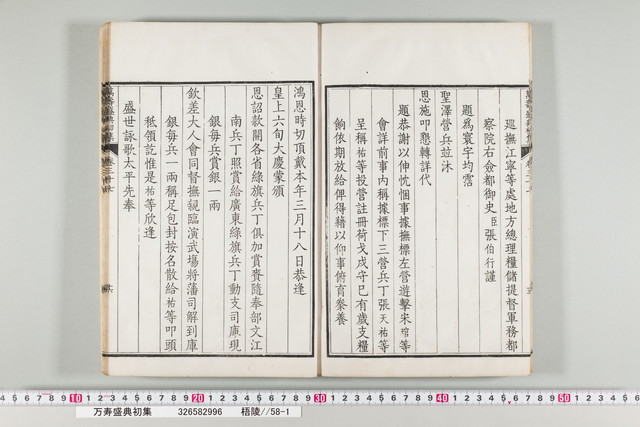 廵撫江寧等處地方總理糧儲提督軍務都
察院右僉都御史臣張伯行謹
題爲寰宇均霑
聖澤營兵竝沐
恩施叩懇轉詳代
題恭謝以伸忱悃事據撫標左營遊擊宋
會詳前事內稱據標下三營兵丁張天祐等
呈稱祐等投營註冊荷戈戍守已有歲支糧
餉依期放給俾得藉以仰事俯育豢養
鴻恩時切頂戴本年三月十八日恭逢
皇上六旬大慶蒙頒
恩詔款開各省綠旗兵丁俱加賞賚隨奉部文江
南兵丁照賞給廣東綠旗兵丁動支司庫現
銀每兵賞銀一兩
欽差大人會同督撫親臨演武塲將藩司解到庫
銀每兵一兩稱足包封按名散給祐等叩頭
秪領訖惟是祐等欣逢
盛世詠歌太平先奉
0 10 20 30 40 50
万寿盛典初集 326582996 梧陵//58-1